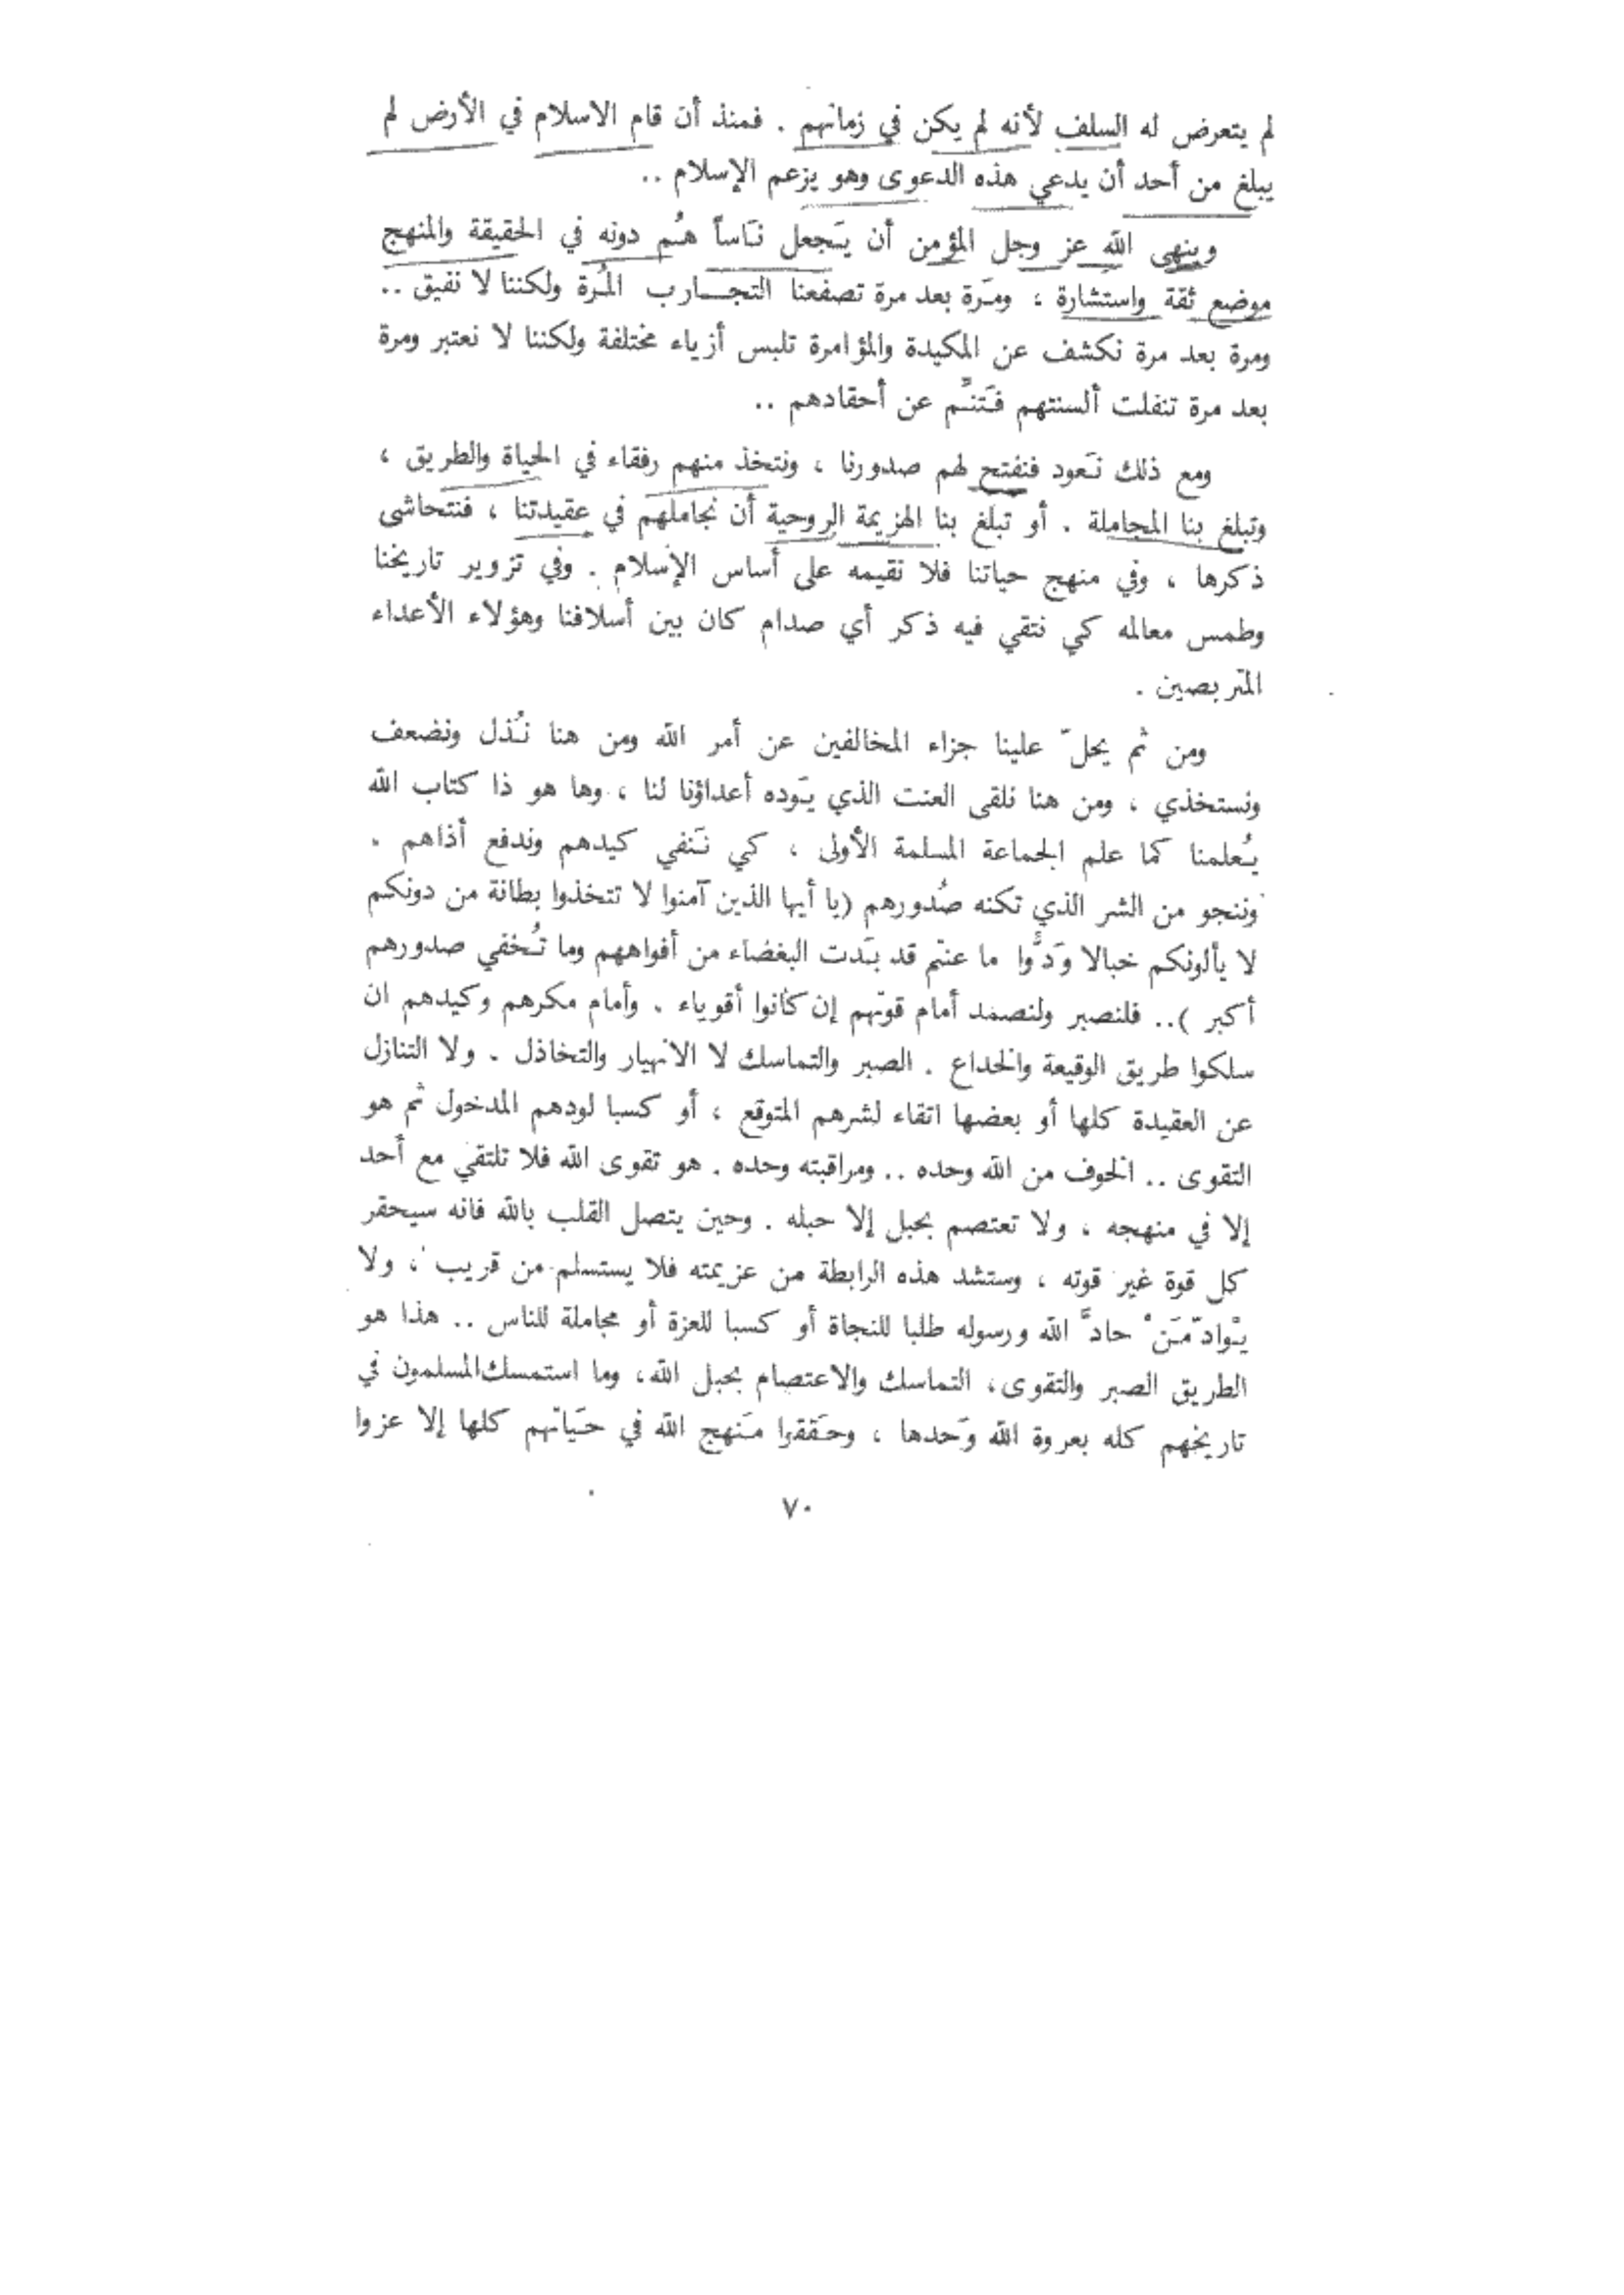 لم يتعرض له السلف لأنه لم يكن في زمانهم . فمنذ أن قام الاسلام في الأرض لم
يبلغ من أحد أن يدعي هذه الدعوى وهو يزعم الإسلام ..
وينهى الله عز وجل المؤمن أن يَجعل نَاساً هُم دونه في الحقيقة والمنهج
موضع ثقة واستشارة ، ومَرة بعد مرة تصفعنا التجـــارب المُرة ولكننا لا نفيق ..
ومرة بعد مرة نكشف عن المكيدة والمؤامرة تلبس أزياء مختلفة ولكننا لا نعتبر ومرة
بعد مرة تنفلت ألسنتهم فَتنُّم عن أحقادهم ..
ومع ذلك نَعود فنفتح لهم صدورنا ، ونتخذ منهم رفقاء في الحياة والطريق ،
وتبلغ بنا المجاملة . أو تبلغ بنا الهزيمة الروحية أن نجاملهم في عقيدتنا ، فنتحاشى
ذكرها ، وفي منهج حياتنا فلا نقيمه على أساس الإسلام . وفي تزوير تاريخنا
وطمس معالمه كي نتقي فيه ذكر أي صدام كان بين أسلافنا وهؤلاء الأعداء
المتربصين .
ومن ثم يحلّ علينا جزاء المخالفين عن أمر الله ومن هنا نُذل ونضعف
ونستخذي ، ومن هنا نلقى العنت الذي يَوده أعداؤنا لنا ، وها هو ذا كتاب الله
يُعلمنا كما علم الجماعة المسلمة الأولى ، كي نَنفي كيدهم وندفع أذاهم .
وننجو من الشر الذي تكنه صُدورهم (يا أيها الذين آمنوا لا تتخذوا بطانة من دونكم
لا يألونكم خبالا وَدُّوا ما عنتم قد بَدت البغضاء من أفواههم وما تُخفي صدورهم
أكبر ).. فلنصبر ولنصمد أمام قوتهم إن كانوا أقوياء . وأمام مكرهم وكيدهم ان
سلكوا طريق الوقيعة والخداع . الصبر والتماسك لا الانهيار والتخاذل . ولا التنازل
عن العقيدة كلها أو بعضها اتقاء لشرهم المتوقع ، أو كسبا لودهم المدخول ثم هو
التقوى .. الخوف من الله وحده .. ومراقبته وحده . هو تقوى الله فلا تلتقي مع أحد
إلا في منهجه ، ولا تعتصم بحبل إلا حبله . وحين يتصل القلب بالله فانه سيحقر
كل قوة غير قوته ، وستشد هذه الرابطة من عزيمته فلا يستسلم من قريب ، ولا
يْوادّ مَنْ حادَّ الله ورسوله طلبا للنجاة أو كسبا للعزة أو مجاملة للناس .. هذا هو
الطريق الصبر والتقوى، التماسك والاعتصام بحبل الله، وما استمسك المسلمون في
تاريخهم كله بعروة الله وَحدها ، وحَققوا مَنهج الله في حَياتهم كلها إلا عزوا
٧٠